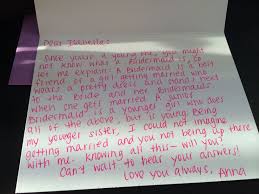 Dear Isabella:
Since you're a young one, you might
not know what a Bridesmaid is, so
let me explain. A Bridesmaid is a best
friend of a girl getting married who
wears a pretty dress and stands next
to the Bride and her Bridesmaids
when she gets married. A Junior
Bridesmaid, is a younger girl who does
all of the above, but is young. Being
my younger sister, I could not imagine
getting married and you not being up there
with me. Knowing all this- will you?
Can't wait to hear your answers!
Love you always, Anna